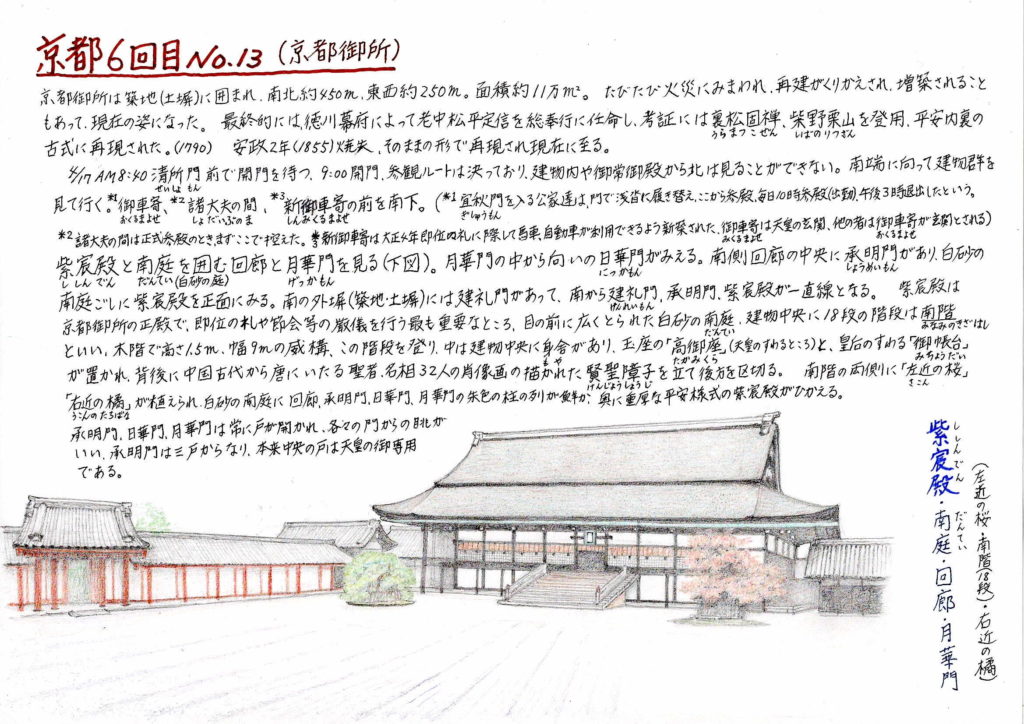 京都6回目 No.13 (京都御所)
京都御所は築地(土塀)に囲まれ、南北約450m、東西約250m。面積約11万㎡。 たびたび火災にみまわれ、再建がくりかえされ、増築されること
もあって、現在の姿になった。 最終的には、徳川幕府によって老中松平定信を総奉行に任命し、考証には裏松固禅、柴野栗山を登用、平安内裏の
うらまつこぜん しばのりつざん
古式に再現された。(1790) 安政2年(1855)焼失、そのままの形で再現され現在に至る。
AM8:40 清所門前で開門を待つ、9:00開門、参観ルートは決っており、建物内や御常御殿から北は見ることができない。南端に向って建物群を
せいしょもん
見て行く。*1御車寄、*2諸大夫の間、*3新御車寄の前を南下。(*1宜秋門を入る公家達は、門で浅沓に履き替え、ここから参殿、毎日10時参殿(出勤)、午後3時退出したという。
おくるまよせ しょだいぶのま しんみくるまよせ ぎしゅうもん
*2諸大夫の間は正式参殿のとき、まずここで控えた。*3新御車寄は大正4年即位の礼に際して馬車、自動車が利用できるよう新築された、御車寄は天皇の玄関、他の者は御車寄が玄関とされる)
みくるまよせ おくるまよせ
紫宸殿と南庭を囲む回廊と月華門を見る(下図)。月華門の中から向いの日華門がみえる。南側回廊の中央に承明門があり、白砂の
ししんでん だんてい(白砂の庭) げっかもん にっかもん しょうめいもん
南庭ごしに紫宸殿を正面にみる。南の外塀(築地・土塀)には建礼門があって、南から建礼門、承明門、紫宸殿が一直線となる。 紫宸殿は
けんれいもん
京都御所の正殿で、即位の礼や節会等の厳儀を行う最も重要なところ、目の前に広くとられた白砂の南庭、建物中央に18段の階段は南階
だんてい みなみのきざはし
といい、木階で高さ1.5m、幅9mの威構、この階段を登り、中は建物中央に身舎があり、玉座の「高御座」(天皇のすわるところ)と、皇后のすわる「御帳台」
もや たかみくら みちょうだい
が置かれ、背後に中国古代から唐にいたる聖者、名相32人の肖像画の描かれた賢聖障子を立て後方を区切る。 南階の両側に「左近の桜」
けんじょうしょうじ さこん
「右近の橘」が植えられ、白砂の南庭に回廊、承明門、日華門、月華門の朱色の柱の列が鮮か、奥に重厚な平安様式の紫宸殿がひかえる。
うこんのたちばな
承明門、日華門、月華門は常に戸が開かれ、各々の門からの眺が
いい、承明門は三戸からなり、本来中央の戸は天皇の御専用
である。
紫宸殿・南庭・回廊・月華門
ししんでん だんてい
(左近の桜・南階(18段)・右近の橘)